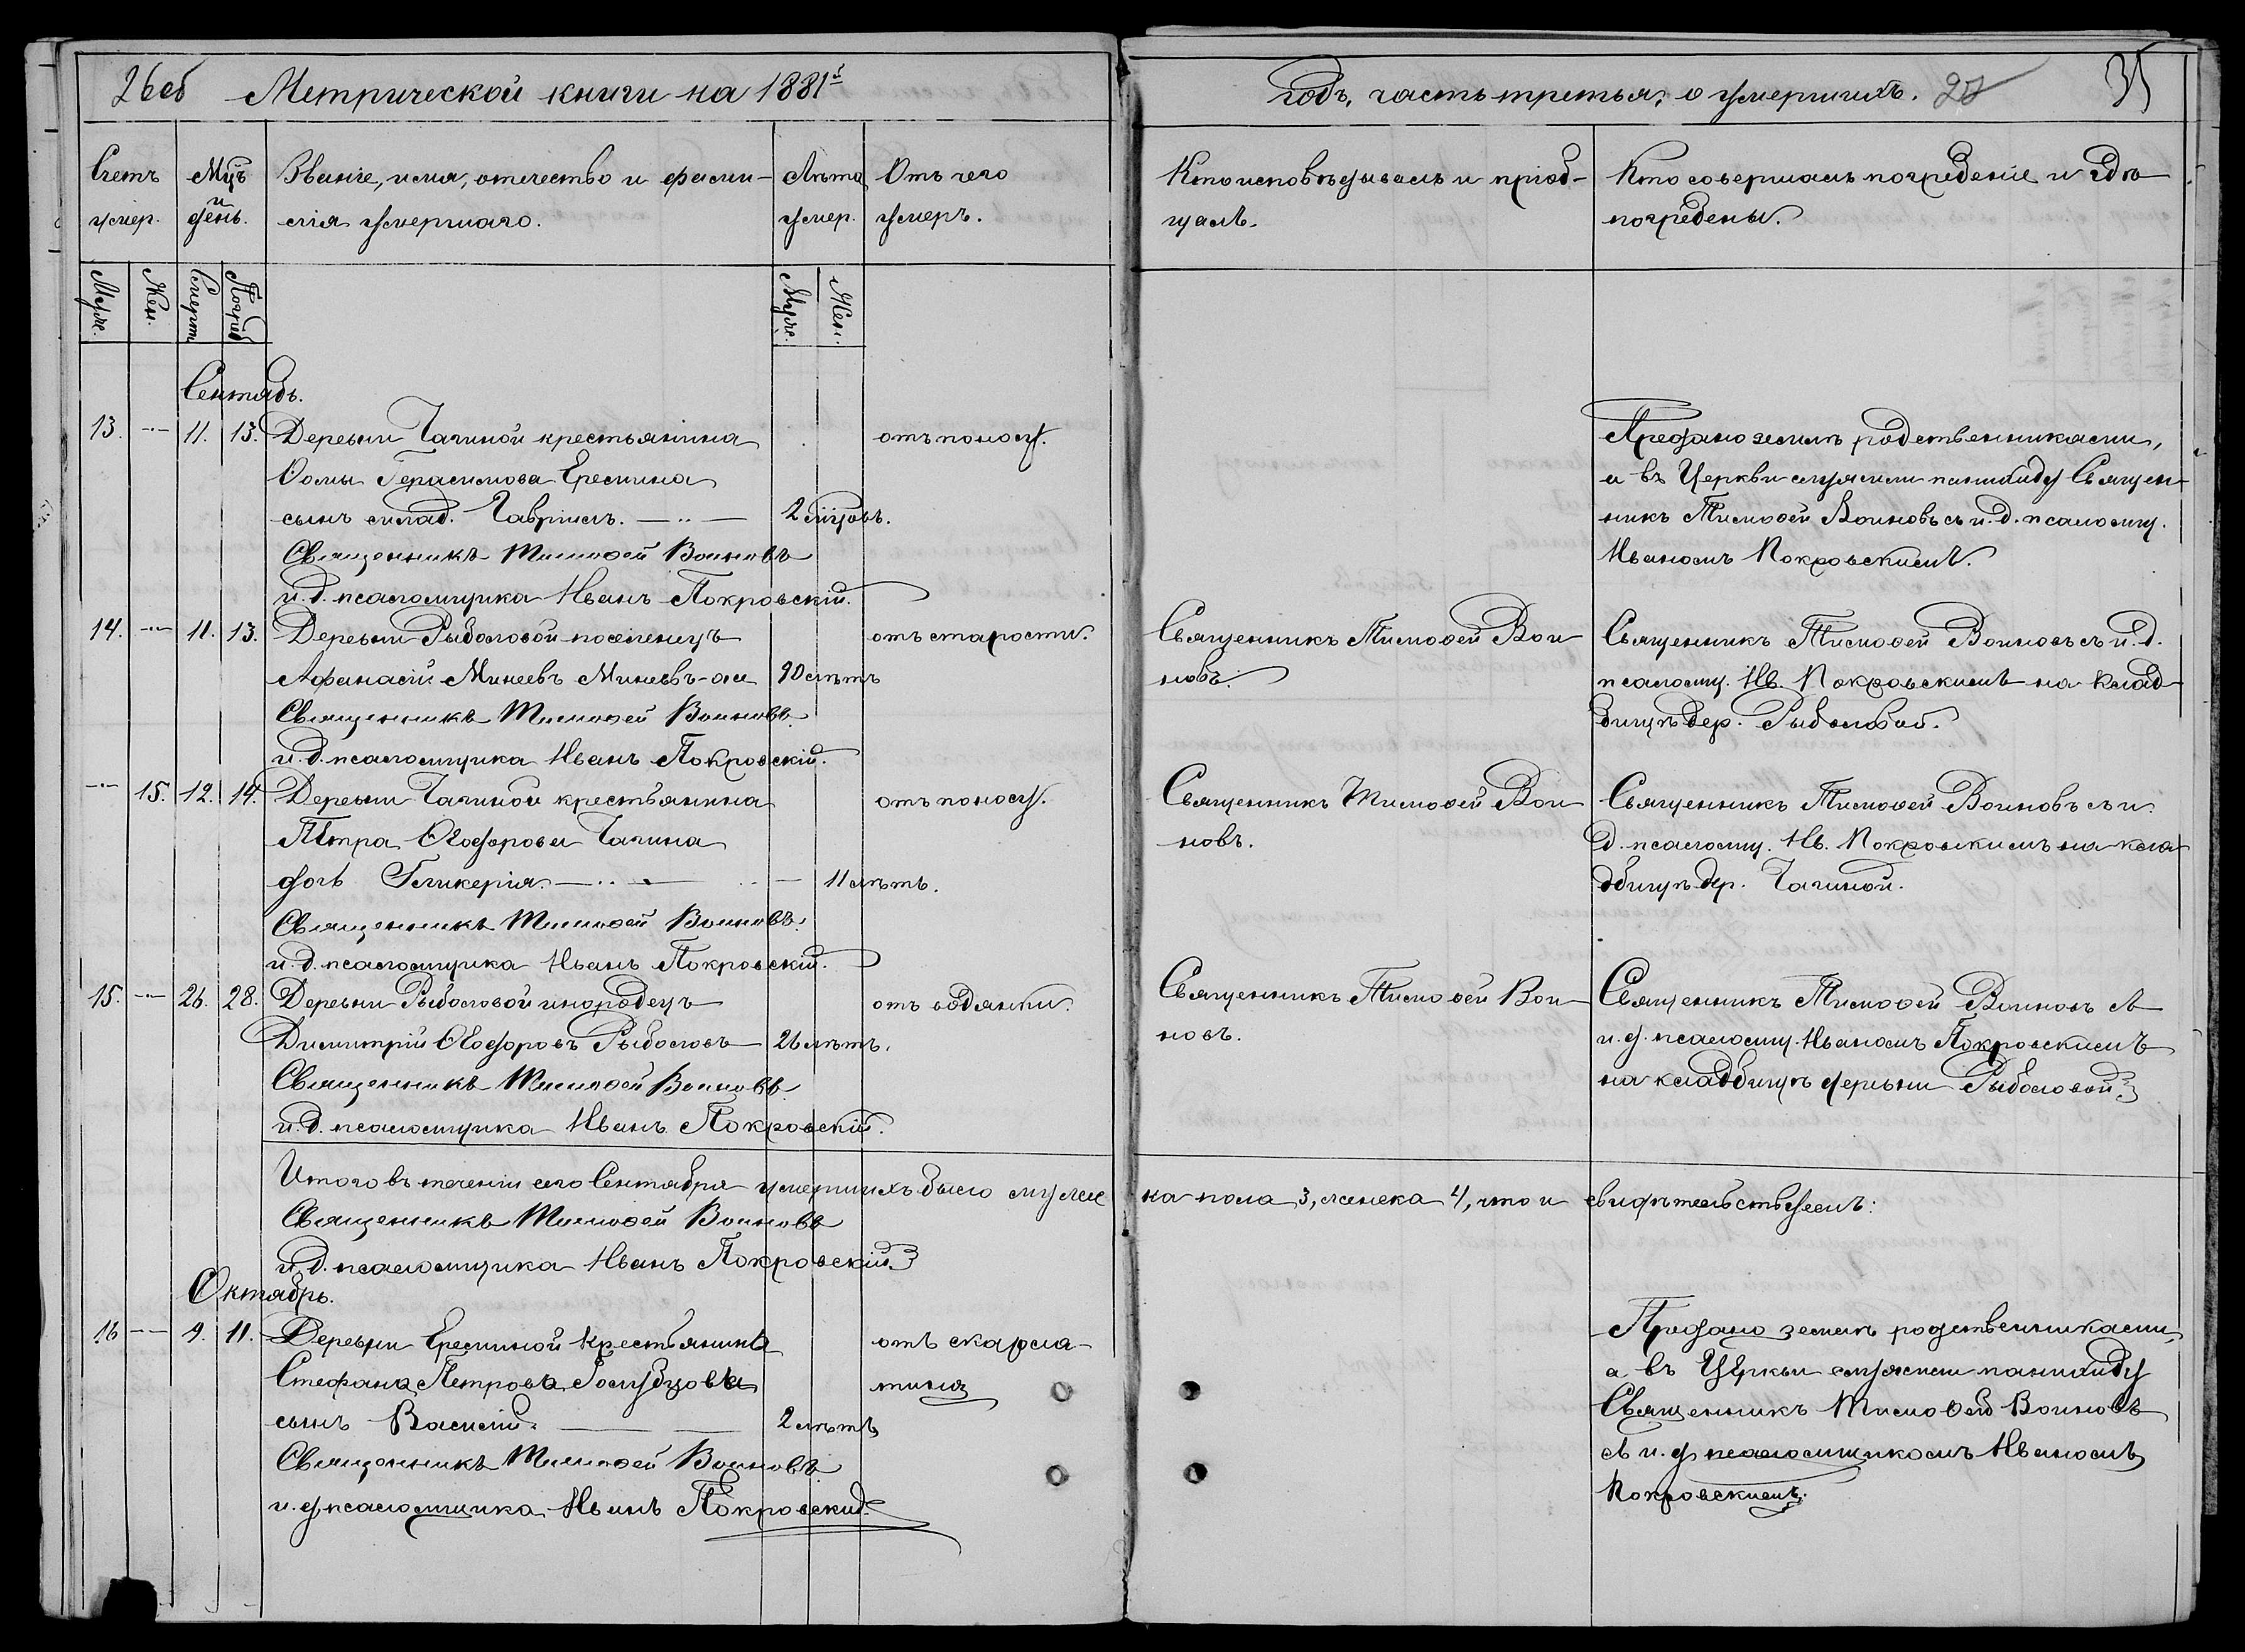 26об Метрической книги на 1881й
годъ, часть третья, о умершихъ. 35
Счетъ умер.
Мцъ и день.
Званіе, имя, отчество и фами-
лія умершаго.
Лѣта умер.
Отъ чего
умеръ.
Кто исповѣдывалъ и пріоб-
щалъ.
Кто совершалъ погребеніе и гдѣ
погребены.
Муже.
Жен.
Смерт.
Погреб
Муже.
Жен.
Сентябь.
13. — 11. 13. Деревни Чагиной крестьянина отъ поносу.
Ѳомы Герасимова Еремина
сынъ млад. Гавріилъ. 2 мцовъ.
Священникъ Тимоѳей Воиновъ
и. д. псаломщика Иванъ Покровскій.
Предано землѣ родственниками,
а въ Церкви служили панихиду Священ-
никъ Тимоѳей Воиновъ съ и. д. псаломщ.
Иваномъ Покровскимъ.
14. — 11. 13. Деревни Рыболовой поселенецъ отъ старости.
Афанасій Минеевъ Минеевъ-же 90 лѣтъ
Священникъ Тимоѳей Воиновъ
и. д. псаломщика Иванъ Покровскій.
Священникъ Тимоѳей Вои-
новъ.
Священникъ Тимоѳей Воиновъ съ и. д.
псаломщ. Ив. Покровскимъ на клад-
бищѣ дер. Рыболовой.
— 15. 12. 14. Деревни Чагиной крестьянина отъ поносу.
Петра Ѳеодорова Чагина
дочь Гликерія. 11 лѣтъ.
Священникъ Тимоѳей Воиновъ.
и. д. псаломщика Иванъ Покровскій.
Священникъ Тимоѳей Вои-
новъ.
Священникъ Тимоѳей Воиновъ съ и.
д. псаломщ. Ив. Покровскимъ на кла-
дбищѣ дер. Чагиной.
15. — 26. 28. Деревни Рыболовой инородецъ отъ водянки.
Димитрій Ѳеодоровъ Рыболовъ 26 лѣтъ.
Священникъ Тимоѳей Воиновъ
и. д. псаломщика Иванъ Покровскій.
Священникъ Тимоѳей Вои-
новъ.
Священникъ Тимоѳей Воиновъ съ
и. д. псаломщ. Иваномъ Покровскимъ
на кладбищѣ деревни Рыболовой.
Итого въ теченіи сего Сентября умершихъ было муже-
ска пола 3, женска 4, что и свидѣтельствуемъ:
Священникъ Тимоѳей Воиновъ
и. д. псаломщика Иванъ Покровскій
Октябрь.
16 — 9. 11. Деревни Ереминой крестьянина отъ скарла-
Стефана Петрова Голубцова тина
сынъ Василій. 2 лѣтъ
Священникъ Тимоѳей Воиновъ
и. д. псаломщика Иванъ Покровскій
Предано землѣ родственниками,
а въ Церкви служили панихиду
Священникъ Тимоѳей Воиновъ
съ и. д. псаломщикомъ Иваномъ
Покровскимъ.